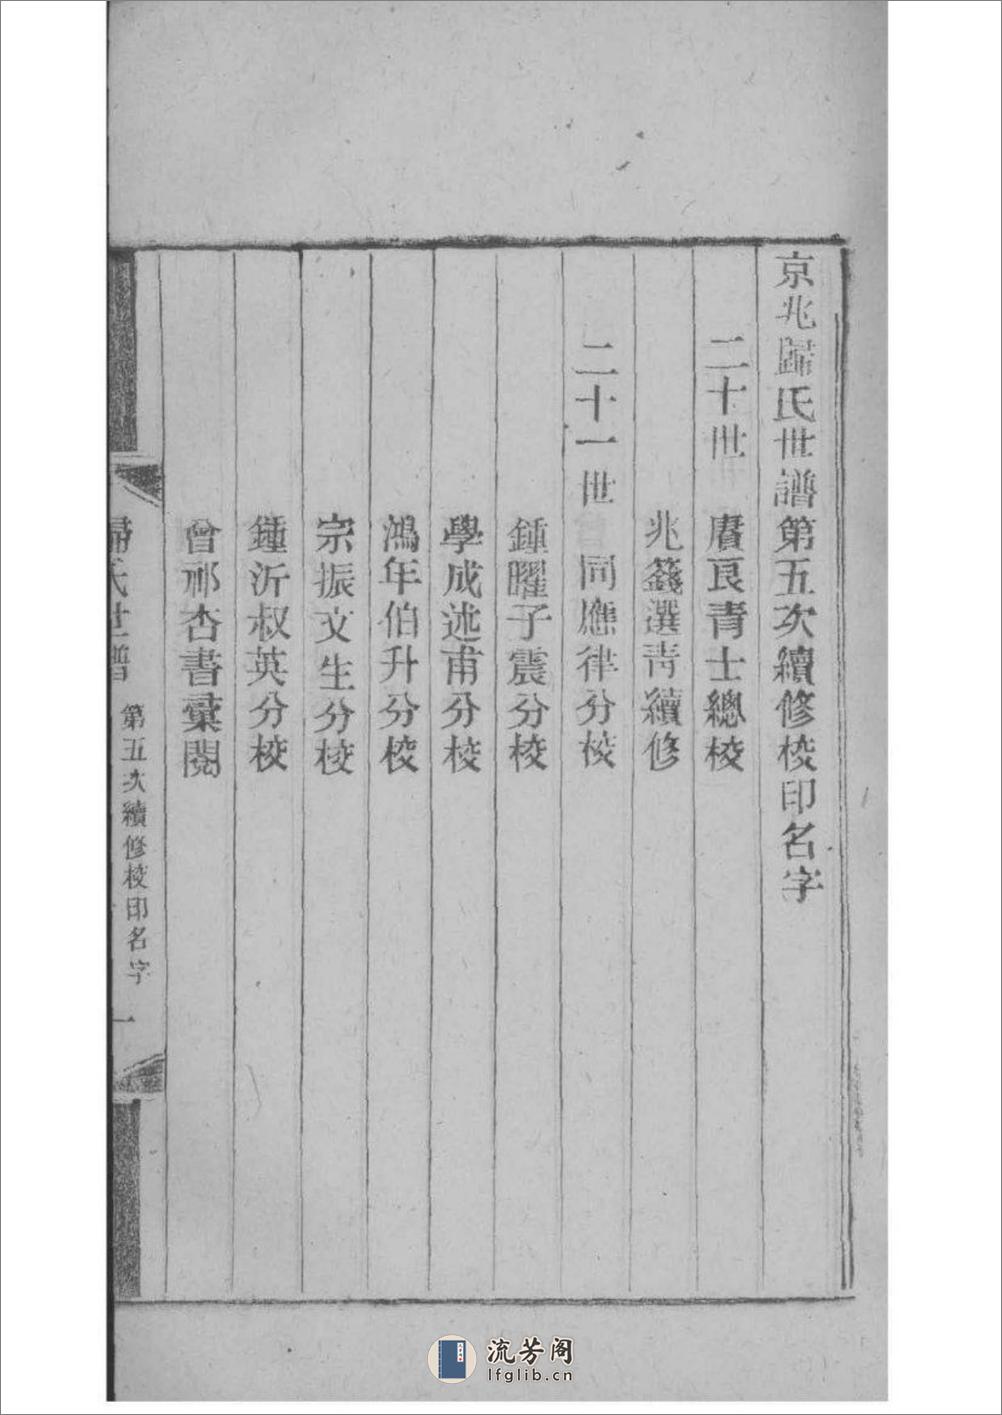 京兆歸氏世譜第五次續修校印名字
二十世　賡良青士總校
兆籛選靑續修
二十一世　同應律分校
鍾曜子震分校
學成述甫分校
鴻年伯升分校
宗振文生分校
鍾沂叔英分校
曾祁杏書彙閱
歸氏世譜　第五次續修校印名字　一
流芳阁
lfglib.cn